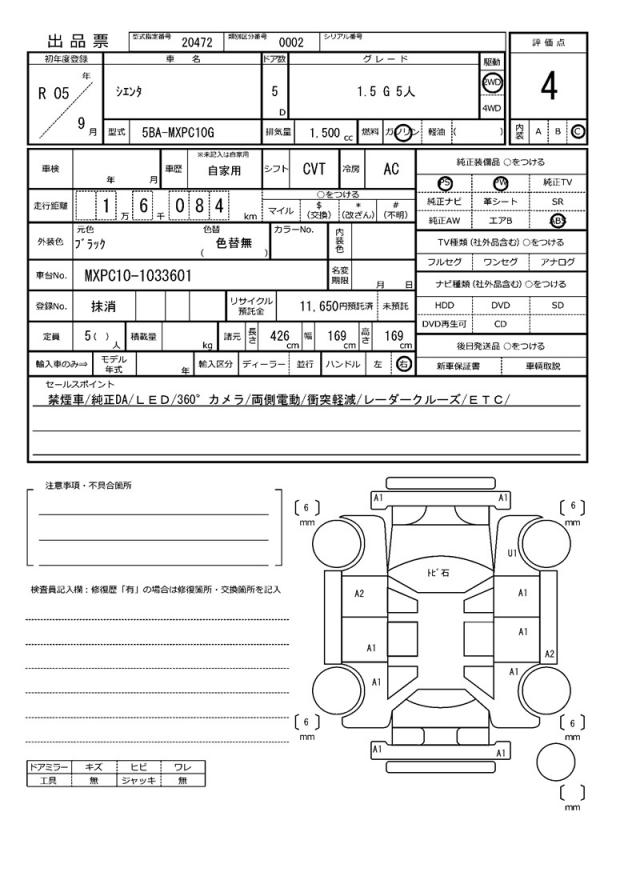 出品票 型式指定番号 20472 類別区分番号 0002 シリアル番号
評価点
初年度登録 車名 ドア数 グレード 駆動
R 05 年 シエンタ 5 D 1.5 G 5人 2WD 4WD 4
9 月 型式 5BA-MXPC10G 排気量 1.500 cc 燃料 ガソリン 軽油 ( ) 内装 A B C
車検 年 月 車歴 ※未記入は自家用 自家用 シフト CVT 冷房 AC
純正装備品 ○をつける
PS PW 純正TV
走行距離 1 万 6 千 0 8 4 km ○をつける
マイル $ (交換) * (改ざん) # (不明)
純正ナビ 革シート SR
純正AW エアB ABS
外装色 元色 ブラック 色替 色替無 ( ) カラーNo. 内装色
TV種類 (社外品含む) ○をつける
フルセグ ワンセグ アナログ
車台No. MXPC10-1033601 名変期限 月 日
ナビ種類 (社外品含む) ○をつける
登録No. 抹消 リサイクル預託金 11,650円預託済 未預託
HDD DVD SD
DVD再生可 CD
定員 5 ( ) 人 積載量 kg 諸元 長さ 426 cm 幅 169 cm 高さ 169 cm
後日発送品 ○をつける
輸入車のみ⇒ モデル年式 年 輸入区分 ディーラー 並行 ハンドル 左 右
新車保証書 車輌取説
セールスポイント
禁煙車/純正DA/ＬＥＤ/360°カメラ/両側電動/衝突軽減/レーダークルーズ/ＥＴＣ/
注意事項・不具合箇所
検査員記入欄：修復歴「有」の場合は修復箇所・交換箇所を記入
A1 A1
6 mm 6 mm
U1
トビ石
A2 A1
A1 A1 A2
A1 A1
6 mm 6 mm
A1 A1
mm
ドアミラー キズ ヒビ ワレ
工具 無 ジャッキ 無